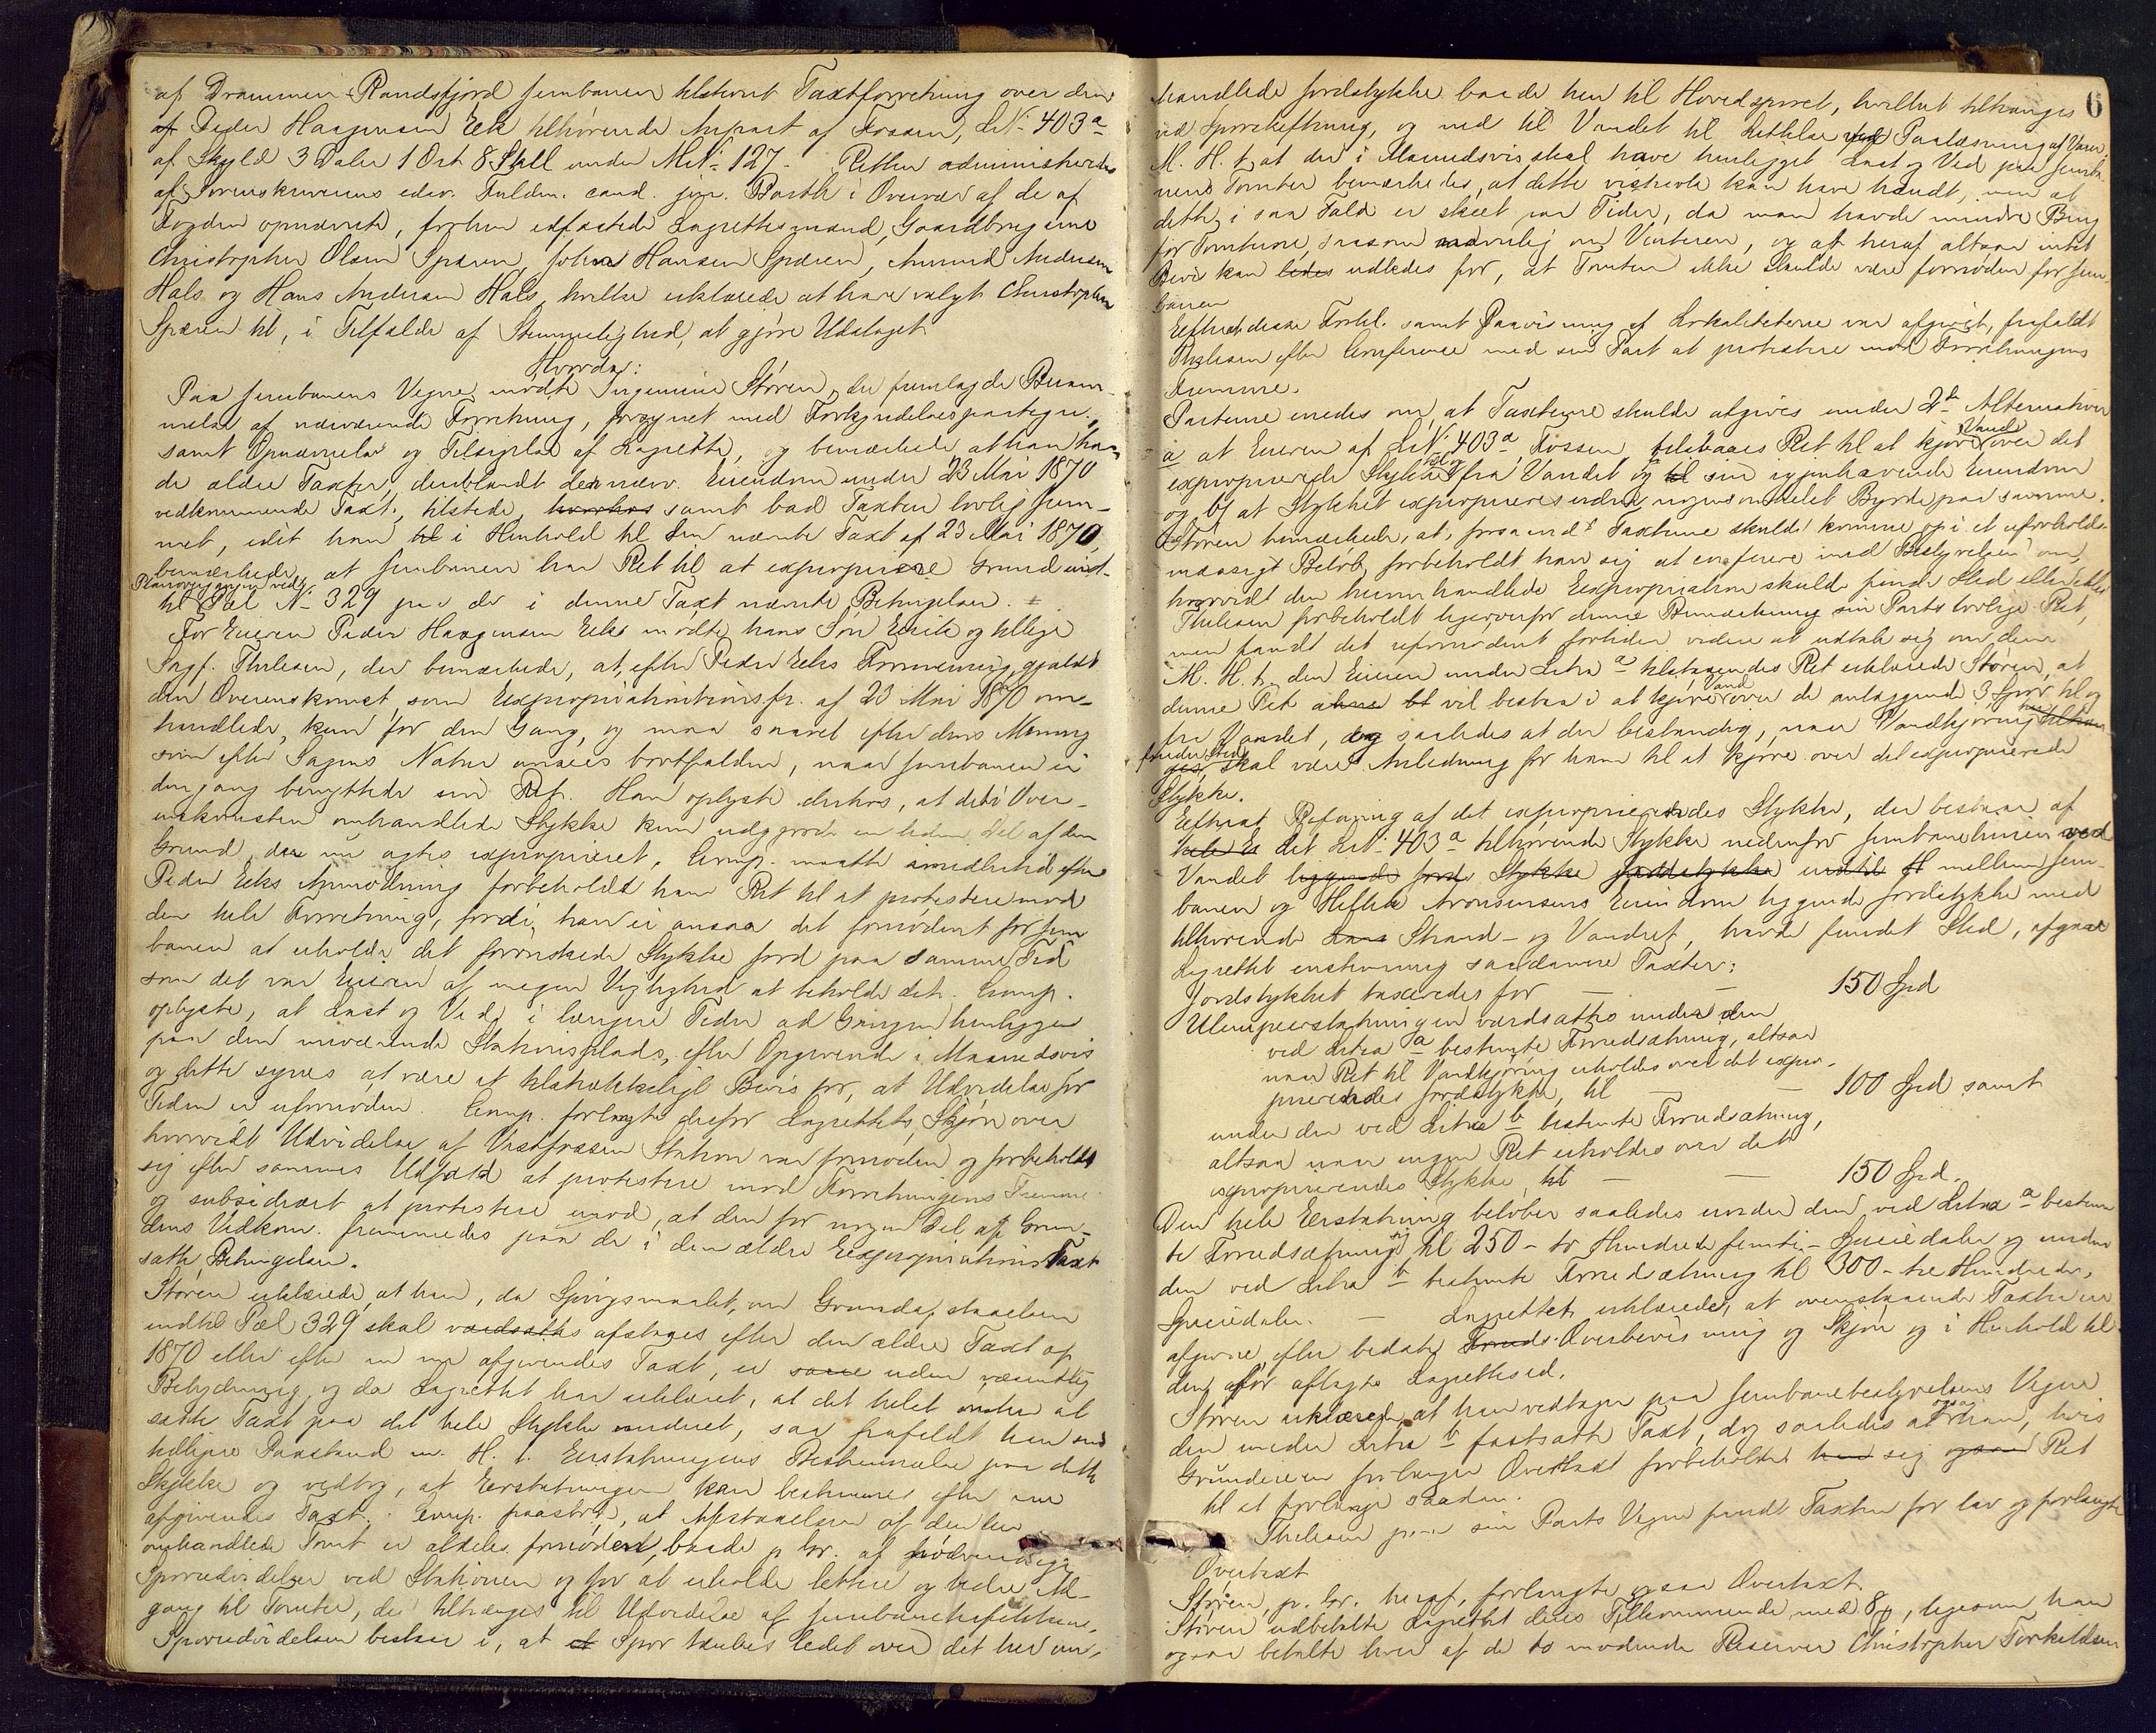 af Drammen-Randsfjord Jernbanen tilstevnt Taxtforretning over den
af Peder Haagensen Eek tilhørende Anpart af Fossen, L.No 403a
af Skyld 3 Daler 1 Ort 8 Skill under M.No 127. Retten administreredes
af Sorenskriverens edsv. Fuldm. cand. jur. Barth i Overvær af de af
Fogden opnævnte, forhen edfæstede Lagrettesmænd, Gaardbrugerne
Christopher Olsen Spæren, Johan Hansen Spæren, Amund Andersen
Hals og Hans Andersen Hals, hvilke erklærede at have valgt Christopher
Spæren til, i Tilfælde af Stemmelighed, at gjøre Udslaget
Hvorda:
Paa Jernbanens Vegne mødte Ingeniør Støren, der fremlagde Beram-
melse af nærværende Forretning, forsynet med Forkyndelsespaategn.,
samt Opnævnelse og Tilsigelse af Lagrette, og bemærkede at han hav
de ældre Taxter, deriblandt den nærv. Eiendom under 23 Mai 1870
vedkommende Taxt, tilstede, hvorhos samt bad Taxten lovlig frem-
met, idet han til i Henhold til den nævnte Taxt af 23 Mai 1870,
bemærkede, at Jernbanen har Ret til at expropriere Grund ind-
Planovergangen ved
til Pæl No 329 paa de i denne Taxt nævnte Betingelser.
For Eieren Peder Haagensen Eek mødte hans Søn Erik og tillige
Sagf. Thelesen, der bemærkede, at, efter Peder Eeks Formening, gjaldt
den Overenskomst, som Expropriationsfr. af 23 Mai 1870 om-
handlede, kun for den Gang, og maa saavel efter dens Mening
som efter Sagens Natur ansees bortfalden, naar Jernbanen ei
dengang benyttede sin Ret. Han oplyste derhos, at det i Over-
enskomsten omhandlede Stykke kun udgjorde en liden Del af den
Grund, der nu agtes exproprieret. Comp. maatte imidlertid efter
Peder Eeks Anmodning forbeholdt ham Ret til at protestere mod
den hele Forretning, fordi han ei ansaa det fornødent for Jern
banen at erholde det forønskede Stykke Jord paa samme Tid
som det var Eieren af megen Vigtighed at beholde det. Comp.
oplyste, at Last og Ved i længere Tider ad Gangen henligger
paa den nuværende Stationsplads, efter Opgivende i Maanedsvis
og dette synes at være et tilstrækkeligt Bevis for, at Udvidelse for
Tiden er ufornøden. Comp. forlangte derfor Lagrettets Skjøn over
hvorvidt Udvidelse af Vestfossen Station var fornøden og forbeholdt
sig efter sammes Udfald at protestere mod Forretningens Fremme
og subsidiært at protestere imod, at den for nogen Del af Grun-
dens Vedkom. fremmedes paa de i den ældre Expropriations Taxt
satte Betingelser.
Støren erklærede, at han, da Spørgsmaalet, om Grundafstaaelsen
indtil Pæl 329 skal værdsættes afstages efter den ældre Taxt af
1870 eller efter en nu afgivendes Taxt, er saare uden væsentlig
Betydning, og da Lagrettet har erklæret, at det helst ønsker at
sætte Taxt paa det hele Stykke underet, saa frafaldt han sin
tidligere Paastand m. H. t. Erstatningens Bestemmelse paa dette
Stykke og vedtog, at Erstatningen kan bestemmes efter nu
afgivendes Taxt. Comp. paastod, at Afstaaelsen af den heri
omhandlede Tomt er aldeles fornøden, baade p. Gr. af nødvendige
Sporudvidelser ved Stationen og for at erholde lettere og bedre Ad-
gang til Tomter, der tiltrænges til Udvidelse af Jernbanetrafikken.
Sporudvidelsen bestaar i, at et Spor tænkes ledet over det her om-
6
handlede Jordstykke baade hen til Hovedsporet, hvilket tiltrænges
ved Sporskiftning, og ned til Vandet til Lettelse ved Paalæsning af Varer.
M. H. t. at der i Maanedsvis skal have henligget Last og Ved paa Jernba-
nens Tomter bemærkedes, at dette vistnok kan have hændt, men at
dette i saa Fald er skeet paa Tider, da man havde mindre Brug
for Tomterne, saasom navnlig om Vinteren, og at heraf altsaa intet
Bevis kan ledes udledes for, at Tomten ikke skulde være fornøden for Jern-
banen
Efterat disse Forhl. samt Paavisning af Lokaliteterne var afgivet, frafaldt
Thelesen efter Conference med sin Part at protestere mod Forretningens
Fremme.
Parterne enedes om, at Taxterne skulde afgives under 2de Alternativer
a at Eieren af L.No 403a, Fossen, tilstaaes Ret til at kjøre Vand over det
exproprierede Stykke til og fra Vandet og til sin egenhavende Eiendom
og b) at Stykket exproprieres uden nogensomhelst Byrde paa samme.
Støren bemærkede, at, forsaavidt Taxterne skulde komme op i et uforholds-
mæssigt Beløb, forbeholdt han sig at conferere med Bestyrelsen om,
hvorvidt den herom handlede Expropriation skulde finde Sted eller ikke
Thelesen forbeholdt ligeoverfor denne Bemærkning sin Parts lovlige Ret,
men fandt det ufornødent fortiden videre at udtale sig om den
M. H. t. den Eieren under Litra a tilstaaendes Ret erklærede Støren, at
denne Ret alene bt vil bestaa i at kjøre Vand over de anlæggende 3 Spor til og
fra Vandet, dog saaledes at der bestandig, naar Vandkjøring tiltræn
finder Sted
ges, skal være Anledning for ham til at kjøre over det exproprierede
Stykke.
Efterat Befaring af det exproprierendes Stykke, der bestaar af
hele det L.No 403a tilhørende Stykke nedenfor Jernbanelinien ved
Vandet liggende Jord Stykke Jordstykke indtil til mellem Jern-
banen og Aronsensens Eiendom liggende Jordstykke med
tilhørende Strand- og Vandret, havde fundet Sted, afgav
Lagrettet enstemmig saadanne Taxter:
Jordstykket taxeredes for — — 150 Spd
Ulempeerstatningen værdsattes under den
ved Litra a bestemte Forudsætning, altsaa
naar Ret til Vandkjøring erholdes over det expro-
prierendes Jordstykke, til — — 100 Spd samt
under den ved Litra b bestemte Forudsætning,
altsaa naar ingen Ret erholdes over det
exproprierendes Stykke, til — — 150 Spd.
Den hele Erstatning beløber saaledes under den ved Litra a bestem
te Forudsætning sig til 250 - to Hundrede femti - Speciedaler og under
den ved Litra b bestemte Forudsætning til 300 - tre Hundrede,
Speciedaler. — Lagrettet erklærede, at ovenstaaende Taxter er
afgivne efter bedste Overbevisning og Skjøn og i Henhold til
den afør aflagte Lagrettesed.
Støren erklærede, at han vedtager paa Jernbanebestyrelsens Vegne
den under Litra b fastsatte Taxt, dog saaledes at ogsaa han, hvis
Grundeieren forlanger Overtaxt forbeholder han sig ogsaa Ret
til at forlange saadan.
Thelesen paa sin Parts Vegne fandt Taxten for lav og forlangte
Overtaxt
Støren, p. Gr. heraf, forlangte ogsaa Overtaxt.
Støren udbetalte Lagrettet deres Tilkommende med 8, ligesom han
ogsaa betalte hver af de to mødende Reserver Christopher Torkildsen